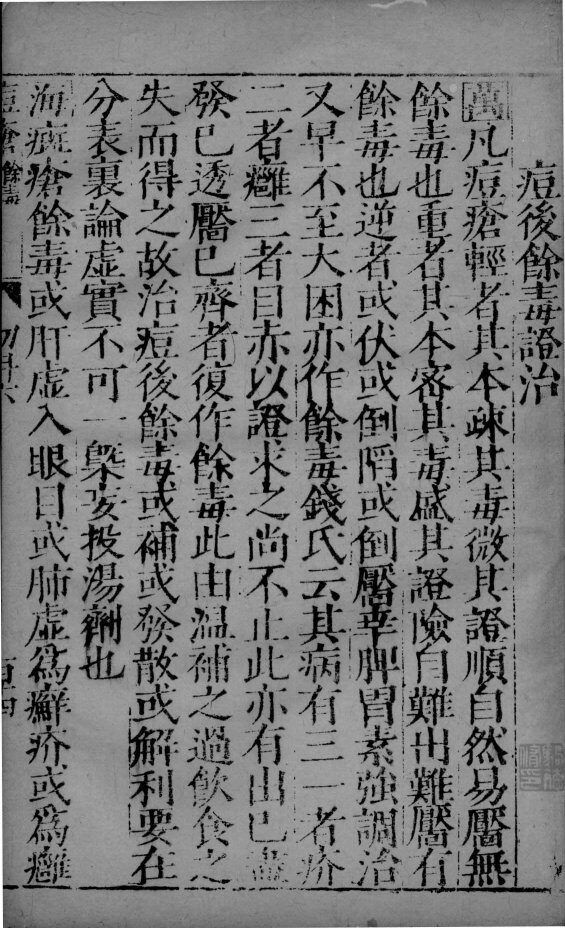 痘後餘毒證治
萬凡痘瘡輕者其本疎其毒微其證順自然易靨無
餘毒也重者其本密其毒盛其證險自難出難靨有
餘毒也逆者或伏或倒陷或倒靨幸脾胃素強調治
又早不至大困亦作餘毒錢氏云其病有三一者疥
二者癰三者目赤以證求之尚不止此亦有出已盡
發已透靨已齊者復作餘毒此由温補之過飲食之
失而得之故治痘後餘毒或補或發散或解利要在
分表裏論虛實不可一槩妄投湯劑也
海痘瘡餘毒或肝虛入眼目或肺虛為癬疥或為癰
痘瘡餘毒